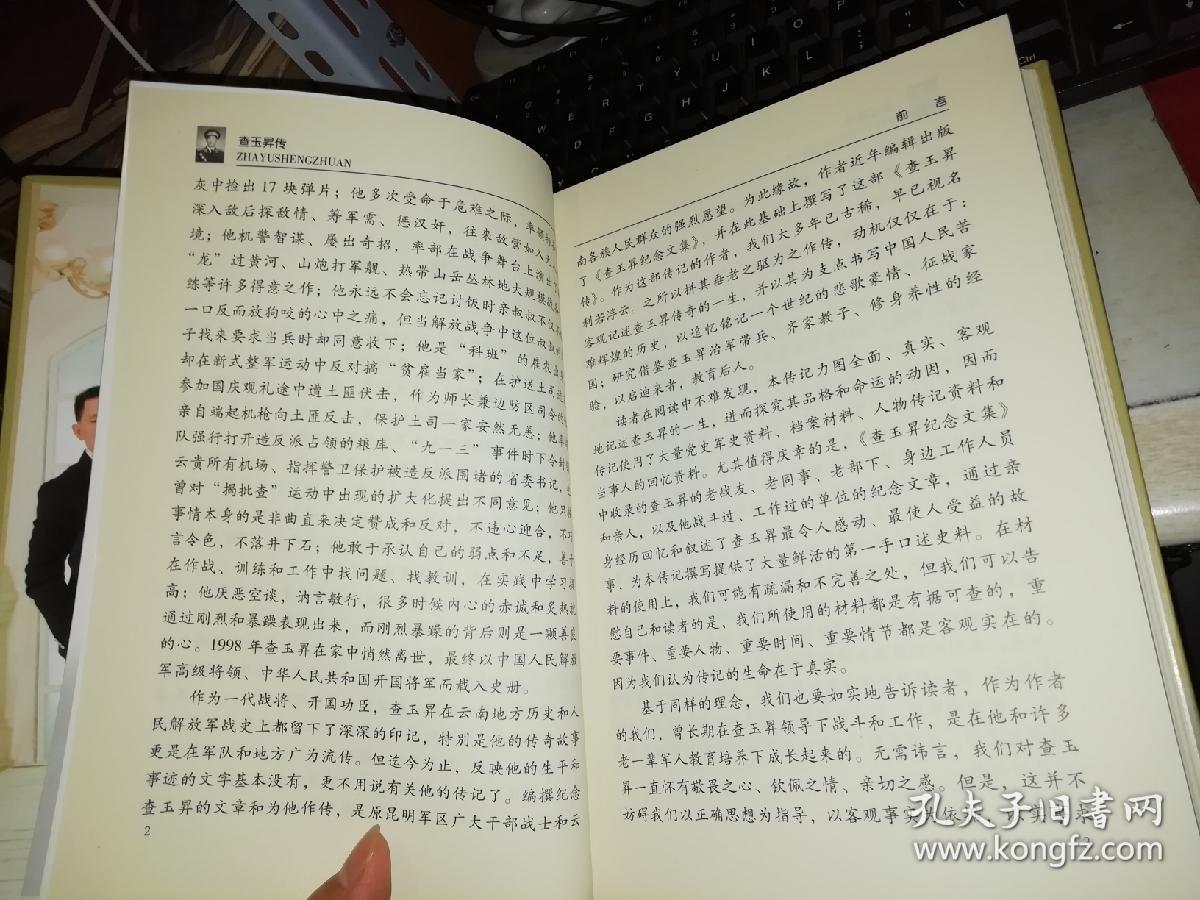 查玉昇传
ZHAYUSHENGZHUAN
灰中捡出17块弹片；他多次受命于危难之际，率部
深入敌后探敌情、筹军需、惩汉奸，往来敌营如入无人
境；他机警智谋、屡出奇招，率部在战争舞台上演出了
“龙”过黄河、山炮打军舰、热带山岳丛林地大规模
练等许多得意之作；他永远不会忘记讨饭时亲叔叔不仅不
一口反而放狗咬的心中之痛，但当解放战争中这位叔叔
子找来要求当兵时却同意收下；他是“科班”的雇农出身
却在新式整军运动中反对搞“贫雇当家”；在护送土司
参加国庆观礼途中遭土匪伏击，作为师长兼边防区司令
亲自端起机枪向土匪反击，保护土司一家安然无恙；他率
队强行打开造反派占领的粮库、“九一三”事件时下令封
云贵所有机场、指挥警卫保护被造反派围堵的省委书记，
曾对“揭批查”运动中出现的扩大化提出不同意见；他只
事情本身的是非曲直来决定赞成和反对，不违心迎合，不巧
言令色，不落井下石；他敢于承认自己的弱点和不足，善于
在作战、训练和工作中找问题、找教训，在实践中学习提
高；他厌恶空谈，讷言敏行，很多时候内心的赤诚和炙热
通过刚烈和暴躁表现出来，而刚烈暴躁的背后则是一颗善良
的心。1998年查玉昇在家中悄然离世，最终以中国人民解放
军高级将领、中华人民共和国开国将军而载入史册。
作为一代战将、开国功臣，查玉昇在云南地方历史和人
民解放军战史上都留下了深深的印记，特别是他的传奇故事
更是在军队和地方广为流传。但迄今为止，反映他的生平和
事迹的文字基本没有，更不用说有关他的传记了。编撰纪念
查玉昇的文章和为他作传，是原昆明军区广大干部战士和云
2
前言
南各族人民群众的强烈愿望。为此缘故，作者近年编辑出版
了《查玉昇纪念文集》，并在此基础上撰写了这部《查玉昇
传》。作为这部传记的作者，我们大多年已古稀，早已视名
利若浮云，之所以拼其垂老之躯为之作传，动机仅仅在于：
客观记述查玉昇传奇的一生，并以其为支点书写中国人民苦
难辉煌的历史，以追忆铭记一个世纪的悲歌豪情、征战家
国；研究借鉴查玉昇治军带兵、齐家教子、修身养性的经
验，以启迪来者，教育后人。
读者在阅读中不难发现，本传记力图全面、真实、客观
地记述查玉昇的一生，进而探究其品格和命运的动因，因而
传记使用了大量党史军史资料、档案材料、人物传记资料和
当事人的回忆资料。尤其值得庆幸的是，《查玉昇纪念文集》
中收录的查玉昇的老战友、老同事、老部下、身边工作人员
和亲人，以及他战斗过、工作过的单位的纪念文章，通过亲
身经历回忆和叙述了查玉昇最令人感动、最使人受益的故
事，为本传记撰写提供了大量鲜活的第一手口述史料。在材
料的使用上，我们可能有疏漏和不完善之处，但我们可以告
慰自己和读者的是，我们所使用的材料都是有据可查的，重
要事件、重要人物、重要时间、重要情节都是客观实在的。
因为我们认为传记的生命在于真实。
基于同样的理念，我们也要如实地告诉读者，作为作者
的我们，曾长期在查玉昇领导下战斗和工作，是在他和许多
老一辈军人教育培养下成长起来的。无需讳言，我们对查玉
昇一直怀有敬畏之心、钦佩之情、亲切之感。但是，这并不
妨碍我们以正确思想为指导，以客观事实为依
孔夫子旧书网
www.kongfz.com